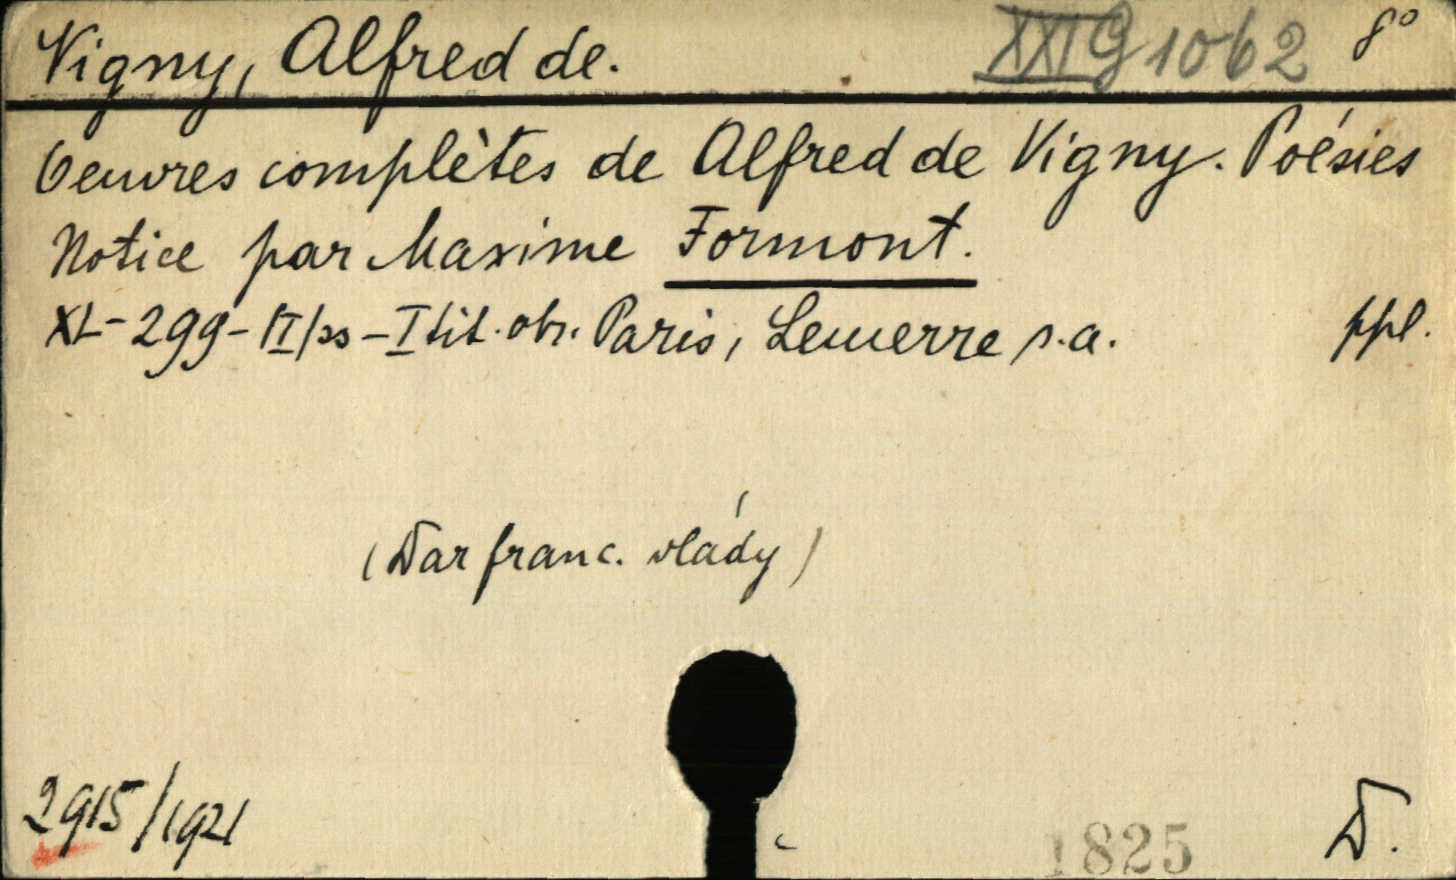 Vigny, Alfred de.
XXI G 1062
8°
Oeuvres complètes de Alfred de Vigny. Poésies
Notice par Maxime Formont.
XL-299-II - I tit. obr. Paris, Lemerre s.a.
ppl.
(Dar franc. vlády)
2915/1921
1825
D.